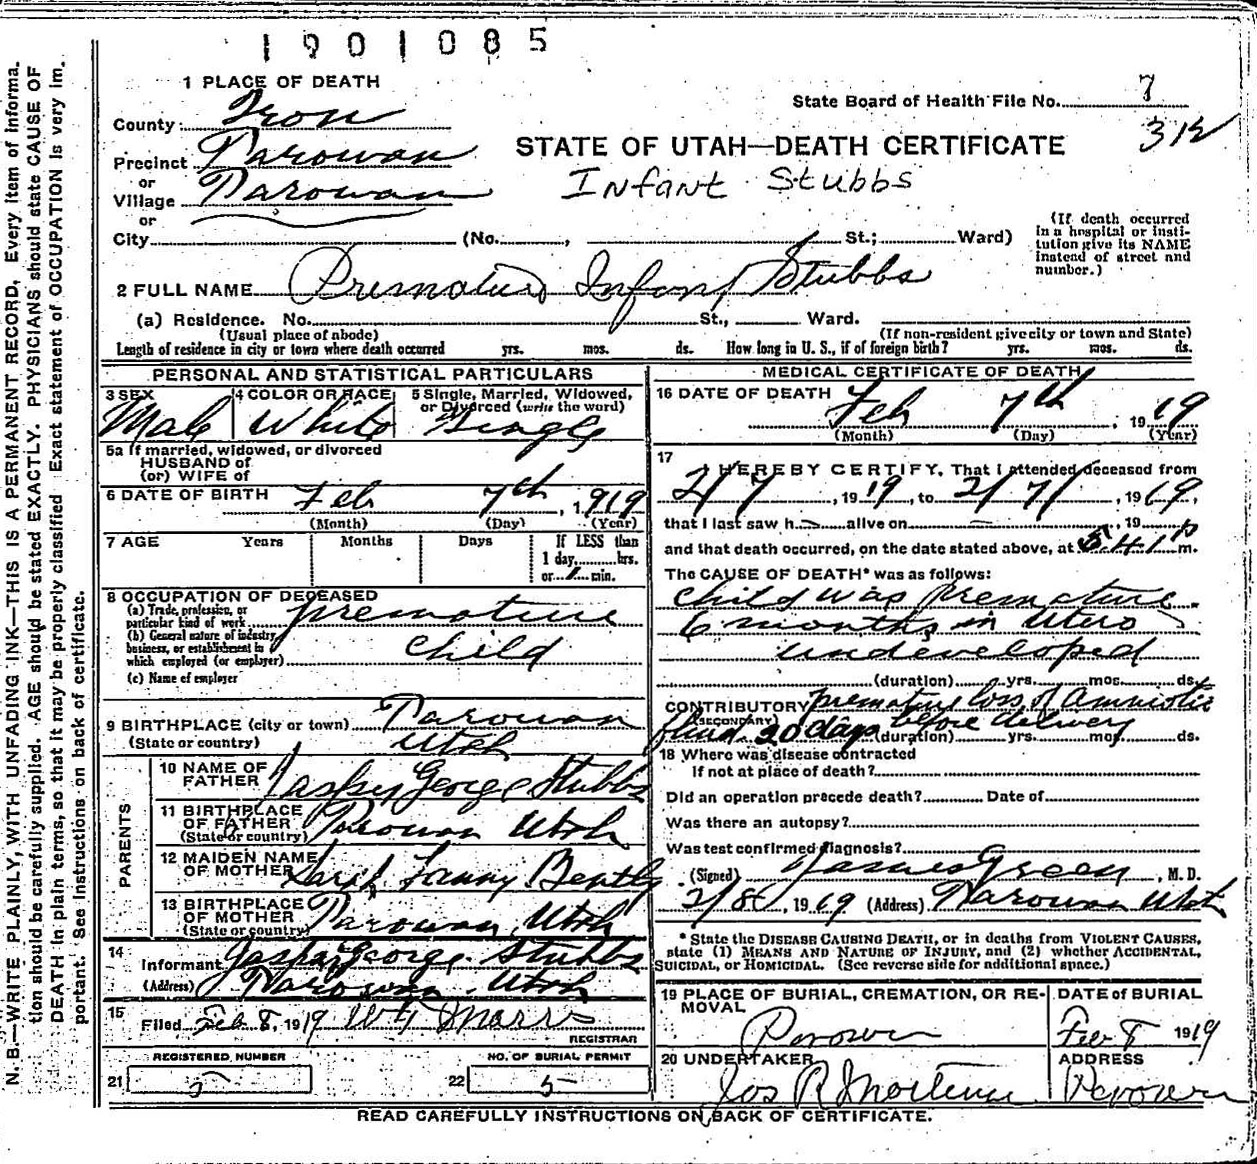 1901085
1 PLACE OF DEATH
State Board of Health File No. 7
312
County Iron
STATE OF UTAH—DEATH CERTIFICATE
Precinct Parowan
Infant Stubbs
or
Village Parowan
or
City (No. , St.; Ward)
(If death occurred in a hospital or insti-
tution give its NAME
instead of street and
number.)
2 FULL NAME Premature Infant Stubbs
(a) Residence. No. St., Ward.
(Usual place of abode) (If non-resident give city or town and State)
Length of residence in city or town where death occurred yrs. mos. ds. How long in U. S., if of foreign birth? yrs. mos. ds.
PERSONAL AND STATISTICAL PARTICULARS
3 SEX Male
4 COLOR OR RACE White
5 Single, Married, Widowed,
or Divorced (write the word) Single
5a If married, widowed, or divorced
HUSBAND of
(or) WIFE of
6 DATE OF BIRTH Feb 7th, 1919
(Month) (Day) (Year)
7 AGE Years Months Days If LESS than
1 day, hrs.
or 1 min.
8 OCCUPATION OF DECEASED
(a) Trade, profession, or
particular kind of work premature
(b) General nature of industry,
business, or establishment in
which employed (or employer) child
(c) Name of employer
9 BIRTHPLACE (city or town) Parowan
(State or country) Utah
PARENTS
10 NAME OF
FATHER George Stubbs
11 BIRTHPLACE
OF FATHER
(State or country) Parowan Utah
12 MAIDEN NAME
OF MOTHER Fanny
13 BIRTHPLACE
OF MOTHER
(State or country) Parowan, Utah
14
Informant George Stubbs
(Address) Parowan Utah
15
Filed Feb 8, 1919
REGISTRAR
REGISTERED NUMBER NO. OF BURIAL PERMIT
21 5 22 5
MEDICAL CERTIFICATE OF DEATH
16 DATE OF DEATH
Feb 7th, 1919
(Month) (Day) (Year)
17
I HEREBY CERTIFY, That I attended deceased from
2/7, 1919, to 2/7/, 1919,
that I last saw h— alive on —, 19
and that death occurred, on the date stated above, at 5:41 P m.
The CAUSE OF DEATH* was as follows:
Child was premature
6 months in utero
undeveloped
(duration) yrs. mos. ds.
CONTRIBUTORY premature loss of amniotic
(SECONDARY) fluid 20 days before delivery
(duration) yrs. mos. ds.
18 Where was disease contracted
if not at place of death?
Did an operation precede death? Date of
Was there an autopsy?
Was test confirmed diagnosis?
(Signed) James Green, M. D.
2/8, 1919 (Address) Parowan Utah
* State the DISEASE CAUSING DEATH, or in deaths from VIOLENT CAUSES,
state (1) MEANS AND NATURE OF INJURY, and (2) whether ACCIDENTAL,
SUICIDAL, or HOMICIDAL. (See reverse side for additional space.)
19 PLACE OF BURIAL, CREMATION, OR RE-
MOVAL Parowan
DATE of BURIAL
Feb 8 1919
20 UNDERTAKER
Jos R
ADDRESS
Parowan
READ CAREFULLY INSTRUCTIONS ON BACK OF CERTIFICATE.
N. B.—WRITE PLAINLY, WITH UNFADING INK—THIS IS A PERMANENT RECORD. Every item of informa-
tion should be carefully supplied. AGE should be stated EXACTLY. PHYSICIANS should state CAUSE OF
DEATH in plain terms, so that it may be properly classified. Exact statement of OCCUPATION is very im-
portant. See instructions on back of certificate.